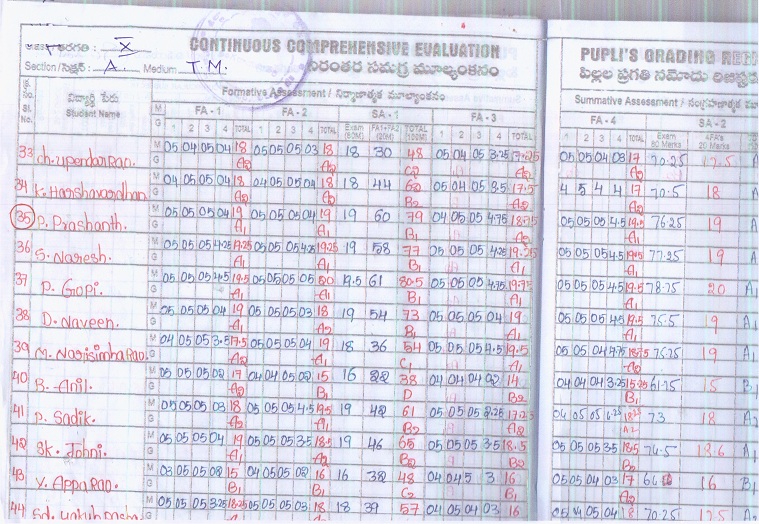 తరగతి : X
CONTINUOUS COMPREHENSIVE EVALUATION
PUPLI'S GRADING
Section/సెక్షన్ : A. Medium T.M.
నిరంతర సమగ్ర మూల్యాంకనం
పిల్లల ప్రగతి నమోదు
Sl. No.
విద్యార్థి పేరు
Student Name
Formative Assessment / నిర్మాణాత్మక మూల్యాంకనం
Summative Assessment / సంగ్రహణాత్మక
M FA - 1 FA - 2 SA - 1 FA - 3 FA - 4 SA - 2
G 1 2 3 4 TOTAL 1 2 3 4 TOTAL Exam (80M) FA1+FA2 (20M) TOTAL (100M) 1 2 3 4 TOTAL 1 2 3 4 TOTAL Exam 80 Marks 4FA's 20 Marks
33 Ch. Upendar Rao. M 05 04 05 04 18 05 05 05 03 18 18 30 48 05 04 05 3.25 17.25 05 05 04 03 17 70.25 17.5
G A2 A2 C2 A2 A2
34 K. Harshavardhan M 04 05 05 04 18 04 05 05 04 18 18 44 4 5 4 4 17 70.5 18
G A2 A2 B2 A2 A2
35 P. Prashanth. M 05 05 05 04 19 05 05 05 04 19 19 60 79 04 05 05 4.75 18.75 05 05 05 4.5 19.5 76.25 19
G A1 A1 B1 A2 A1
36 S. Naresh. M 05 05 05 4.25 19.25 05 05 05 4.25 19.25 19 58 77 05 05 05 4.25 19.25 77.25 19
G A1 A1 B1 A1 A1
37 P. Gopi. M 05 05 05 4.5 19.5 05 05 05 05 20 19.5 61 80.5 05 05 05 4.75 19.75 05 05 05 4.5 19.5 78.75 20
G A1 A1 B1 A1 A1
38 D. Naveen. M 05 05 05 04 19 05 05 05 03 18 19 54 73 05 05 05 04 19 05 05 05 4.5 19.5 75.5 19
G A1 A2 B1 A1 A1
39 M. Narisimha Rao. M 04 05 05 3.5 17.5 05 05 05 04 19 18 36 54 05 05 05 4.5 19.5 05 05 04 4.75 18.75 75.25 19
G A2 A1 C1 A1
40 B. Anil. M 05 05 05 02 17 04 04 05 02 15 16 22 38 04 04 04 02 14 04 04 04 3.25 15.25 61.75 15
G A2 B1 D B2 B1
41 P. Sadik. M 05 05 05 03 18 05 05 05 4.5 19.5 19 42 61 05 05 05 04 05 05 4.25 18.25 73 18
G A2 A1 B2 A2 A2
42 Sk. Johni. M 05 05 05 04 19 05 05 05 3.5 18.5 19 46 65 05 05 05 3.5 18.5 05 05 05 3.5 18.5 74.5
G A1 B2
43 V. Appa Rao. M 03 05 05 02 15 04 05 05 02 16 16 32 48 04 04 5 3 16 05 05 04 03 17 16
G B1 B1 C2 B1 B1
44 M 05 05 05 3.25 18.25 05 05 05 03 18 18 39 57 04 05 04 03 16 04 05 04 18 70.25 17.5